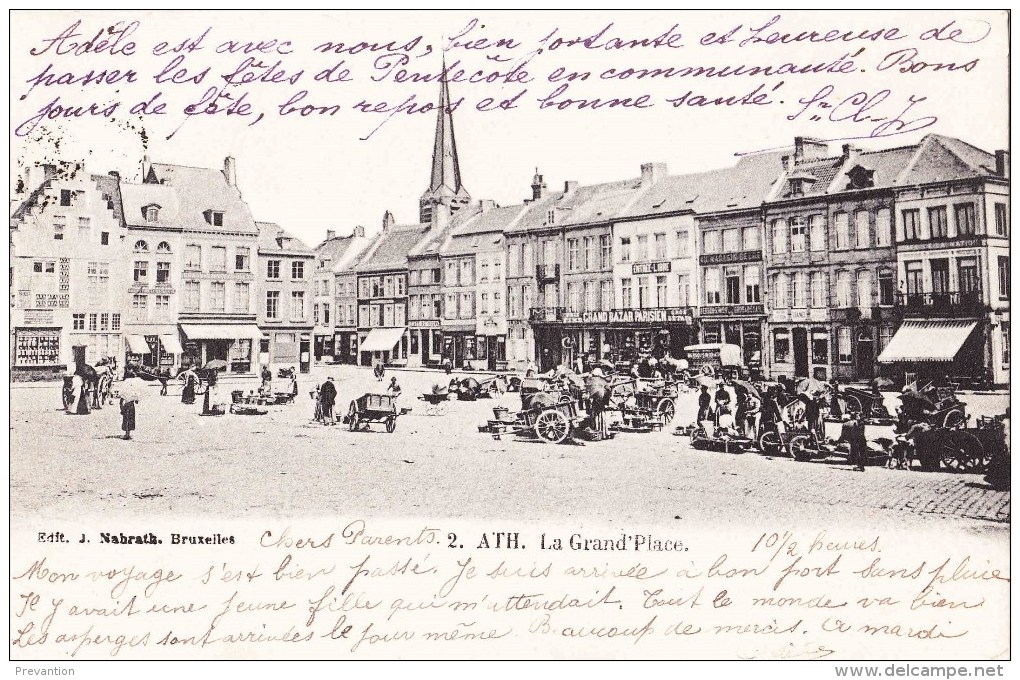 Adèle est avec nous, bien portante et heureuse de
passer les fêtes de Pentecôte en communauté. Bons
jours de fête, bon repos et bonne santé. Sr Cl-J
ENTRÉE LIBRE
GRAND BAZAR PARISIEN
Edit. J. Nahrath. Bruxelles
Chers Parents.
2. ATH. La Grand'Place.
10 1/2 heures.
Mon voyage s'est bien passé. Je suis arrivée à bon port sans pluie
Il y avait une jeune fille qui m'attendait. Tout le monde va bien
Les asperges sont arrivées le jour même. Beaucoup de mercis. A mardi
Prevantion
www.delcampe.net